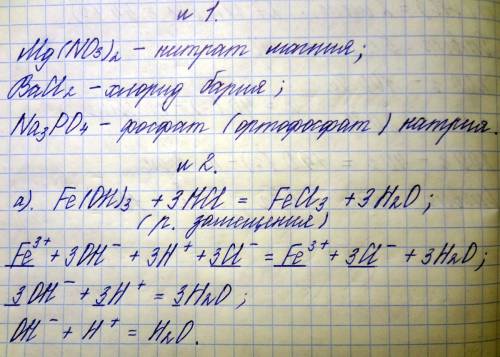 № 1.
Mg(NO3)2 - нитрат магния;
BaCl2 - хлорид бария;
Na3PO4 - фосфат (ортофосфат) натрия.
№ 2.
а). Fe(OH)3 + 3HCl = FeCl3 + 3H2O;
(р. замещения)
Fe³⁺ + 3OH⁻ + 3H⁺ + 3Cl⁻ = Fe³⁺ + 3Cl⁻ + 3H2O;
3OH⁻ + 3H⁺ = 3H2O;
OH⁻ + H⁺ = H2O.